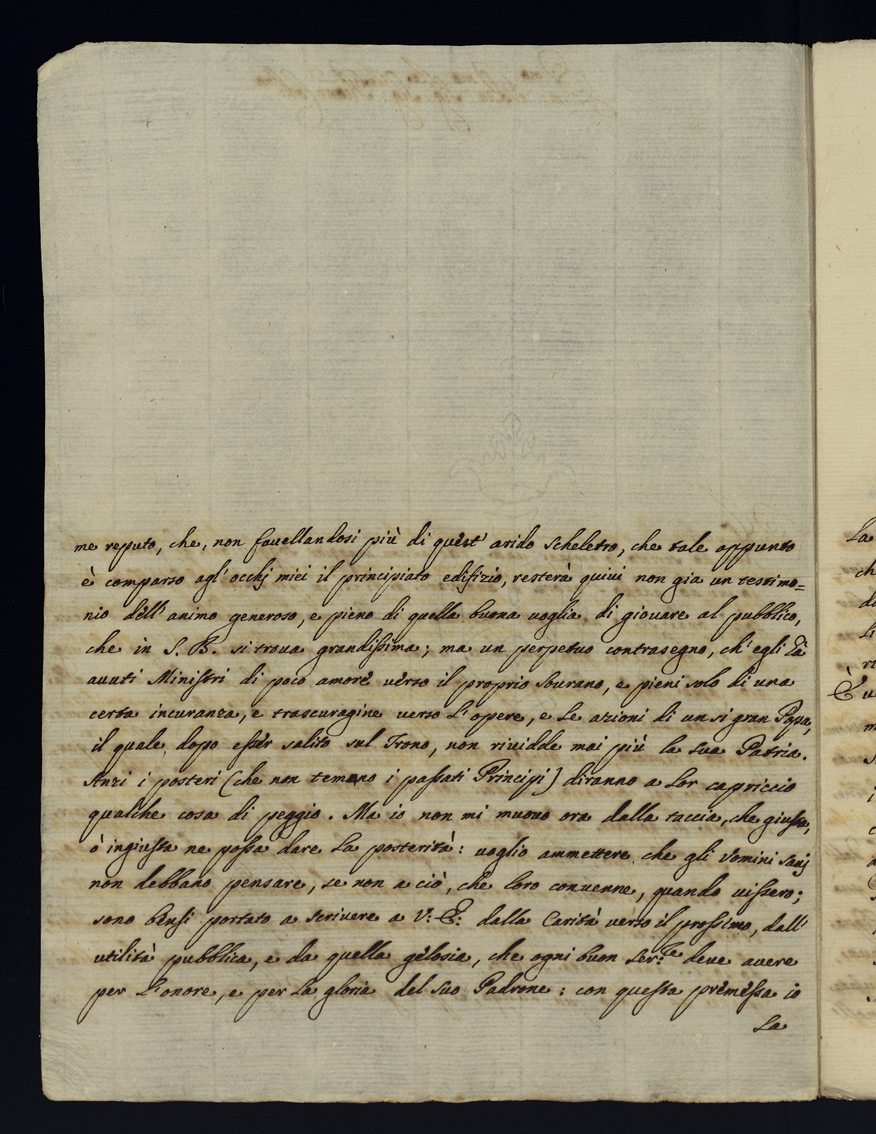 me reputo, che, non favellandosi più di quest' arido scheletro, che tale appunto
è comparso agl' occhj miei il principiato edifizio, resterà quivi non gia un testimo=
nio dell' animo generoso, e pieno di quella buona voglia di giovare al pubblico,
che in S. B. si trova grandissima; ma un perpetuo contrasegno, ch' egli hà
avuti Ministri di poco amore verso il proprio Sovrano, e pieni solo di una
certa incuranza, e trascuragine verso l' opere, e le azioni di un si gran Papa,
il quale dopo esser salito sul Trono, non rividde mai più la sua Patria.
Anzi i posteri (che non temono i passati Principi) diranno a lor capriccio
qualche cosa di peggio. Ma io non mi muovo ora dalla taccia, che giusta,
ò ingiusta ne possa dare la posterità: voglio ammettere che gli Uomini savj
non debbano pensare, se non a ciò, che loro convenne, quando vissero;
sono bensi portato a scrivere a V: E: dalla Carità verso il prossimo, dall'
utilità pubblica, e da quella gelosia, che ogni buon Ser:re deve avere
per l' onore, e per la gloria del suo Padrone: con questa premessa io
la
La
ch